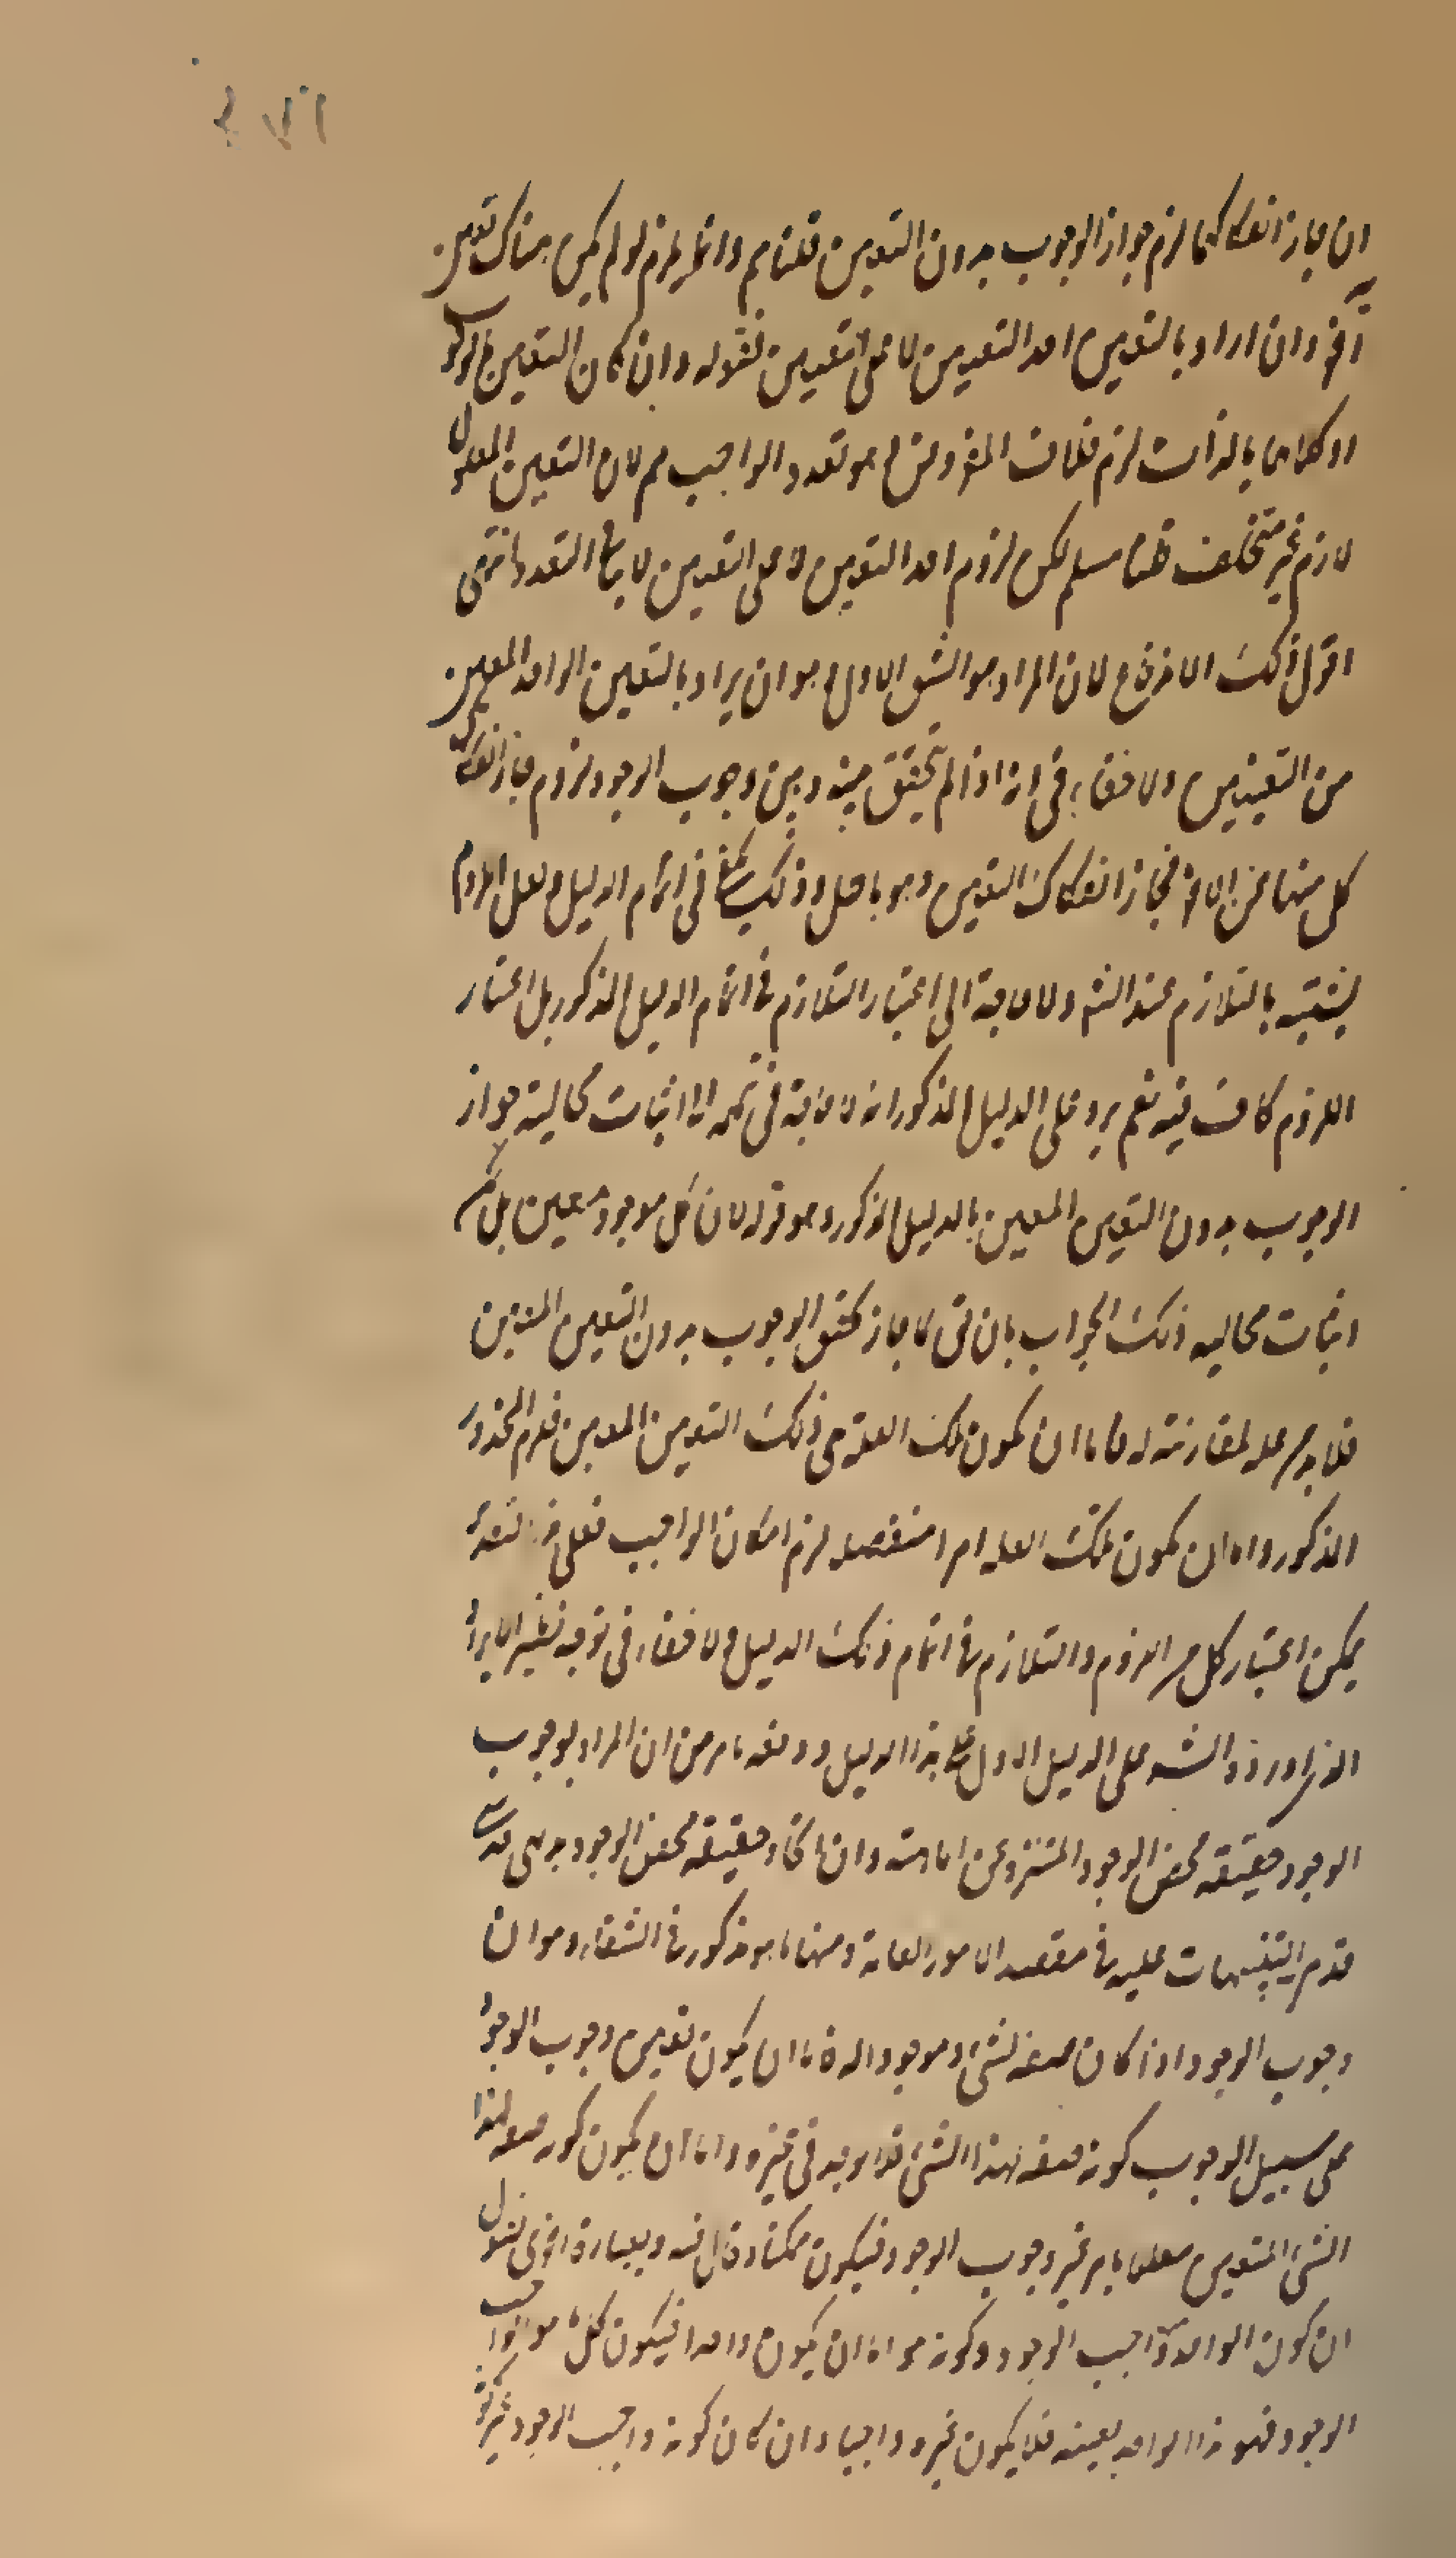 ان جاز انفكاكهما لزم جواز الوجوب بدون التعين قلنا مم وانما يلزم لو لم يكن هناك تعين
آخر وان اراد بالتعين احد التعينين لا على التعيين فقوله وان كان التعين بالوجوب
او كلاهما بالذات لزم خلاف المفروض وهو تعدد الواجب مم لان التعين المعلول
لازم غير متخلف قلنا مسلم لكن لزوم احد التعينين لا على التعيين لا ينافى التعدد انتهى
اقول ذلك الا لان المراد هو الشق الاول وهو ان يراد بالتعين الواحد المعين
من التعينين ولا خفاء فى انه اذا لم يتحقق بينه وبين وجوب الوجود لزوم جاز انفكاك
كل منهما عن الآخر فجاز انفكاك التعين وهو باطل وذلك يكفى فى اتمام الدليل ولعل اللزوم
يشتبه بالتلازم عند الشه ولا حاجة الى اعتبار التلازم فى اتمام الدليل المذكور بل اعتبار
اللزوم كاف فيه نعم يرد على الدليل المذكور انه لا حاجة فى الى اثبات محالية جواز
الوجوب بدون التعين المعين بالدليل المذكور وهو قوله لان كل موجود معين بل
اثبات محالية ذلك الجواب بان لما جاز تحقق الوجوب بدون التعين المعين
فلا بد من علة لمقارنته له فاما ان يكون تلك العلة هى ذلك التعين المعين فلزم المحذور
المذكور واما ان يكون تلك العلة امرا منفصلا لزم امكان الواجب فعلى
يمكن اعتبار كل من اللزوم والتلازم فى اتمام ذلك الدليل ولا خفاء فى توجه نظير الايراد
الذى اورده الشه على الدليل الاول على هذا الدليل ودفعه ما مر من ان المراد بوجوب
الوجود حقيقة محض الوجود المتنزه عن الماهية وان اتحاد حقيقة محض الوجود بديهى
قد مر التنبيهات عليه فى مقصد الامور العامة ومنها ما هو مذكور فى الشفاء وهو ان
وجوب الوجود اذا كان صفة لشئ وموجودا له فاما ان يكون تعين وجوب الوجود
على سبيل الوجوب كونه صفة لهذا الشئ فلا يوجد فى غيره واما ان يكون كونه صفة لهذا
الشئ المتعين معللا بامر غير وجوب الوجود فيكون ممكنا وقال فيه وبعبارة اخرى نقول
ان كون الواحد واجب الوجود وكونه هو اما ان يكون واحدا فيكون كل ما هو واجب
الوجود فهو هذا الواحد بعينه فلا يكون غيره واجبا وان كان كونه واجب الوجود غير كونه